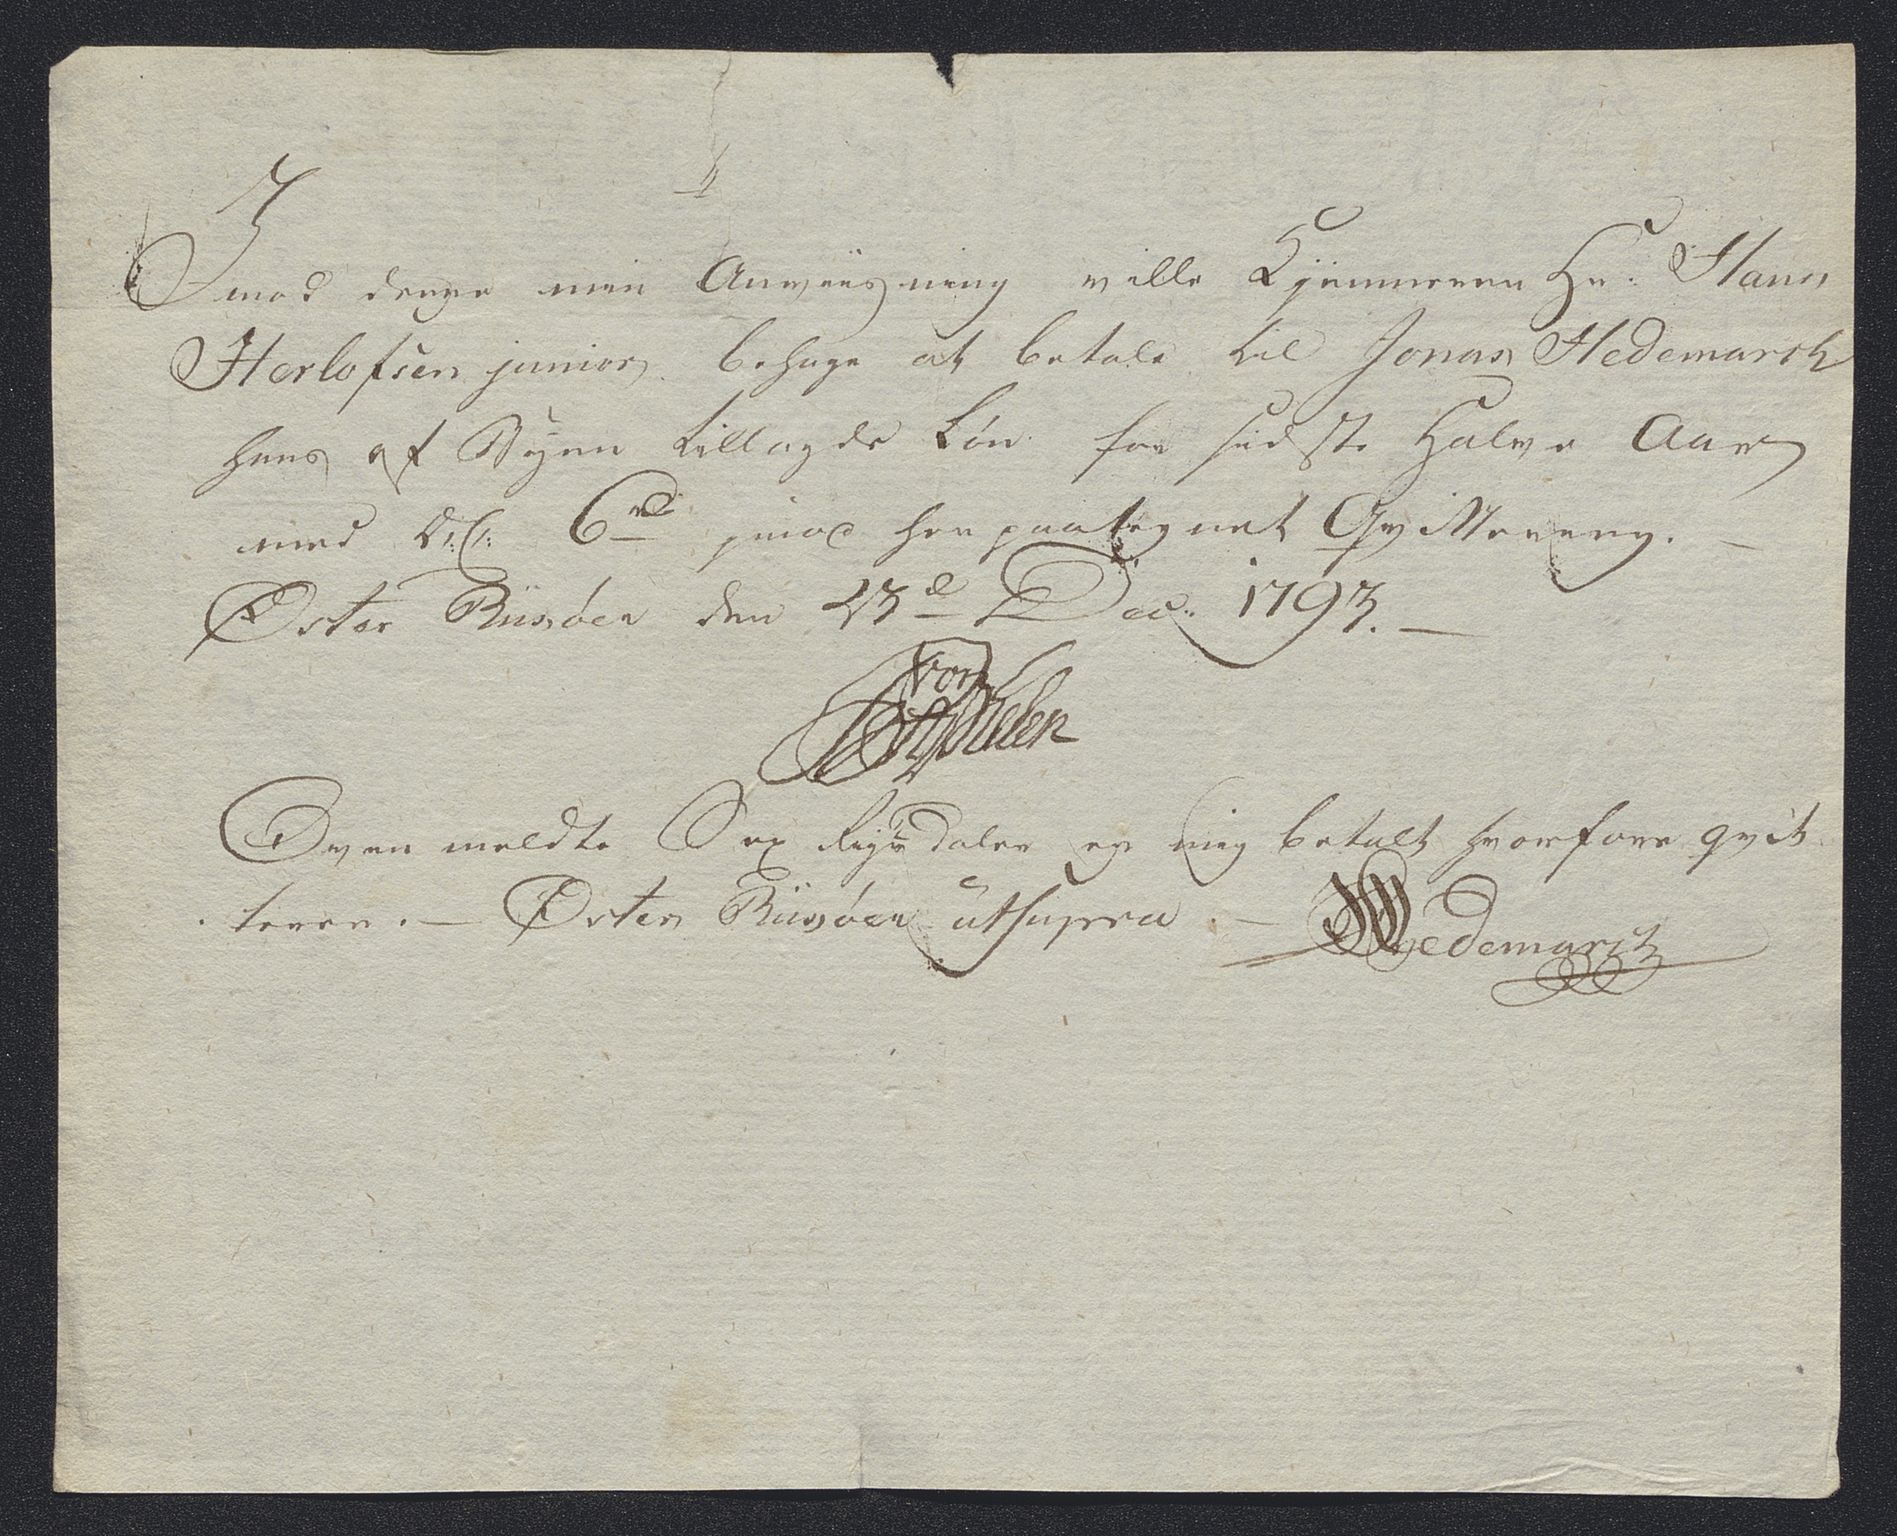 7
Imod denne min Anviisning ville Kjemneren Hr. Hans
Herlofsen junior behage at betale til Jonas Hedemarck
hans af Byen tillagde Løn for sidste Halve Aar
med 6 rd imod her paategnet Qvittering. —
Øster Riisøer den 23d Dec: 1793. —
Oven meldte Sex Rigsdaler er mig betalt hvorfore qvit-
terer. — Øster Riisøer utsupra. — JHedemarck